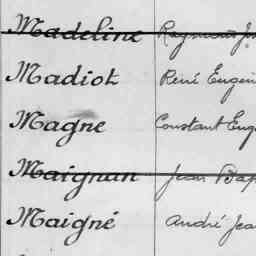 Madeline Raymond
Madiot René Eugène
Magne Constant Eug
Maignan Jean Bap
Maigné André Jea